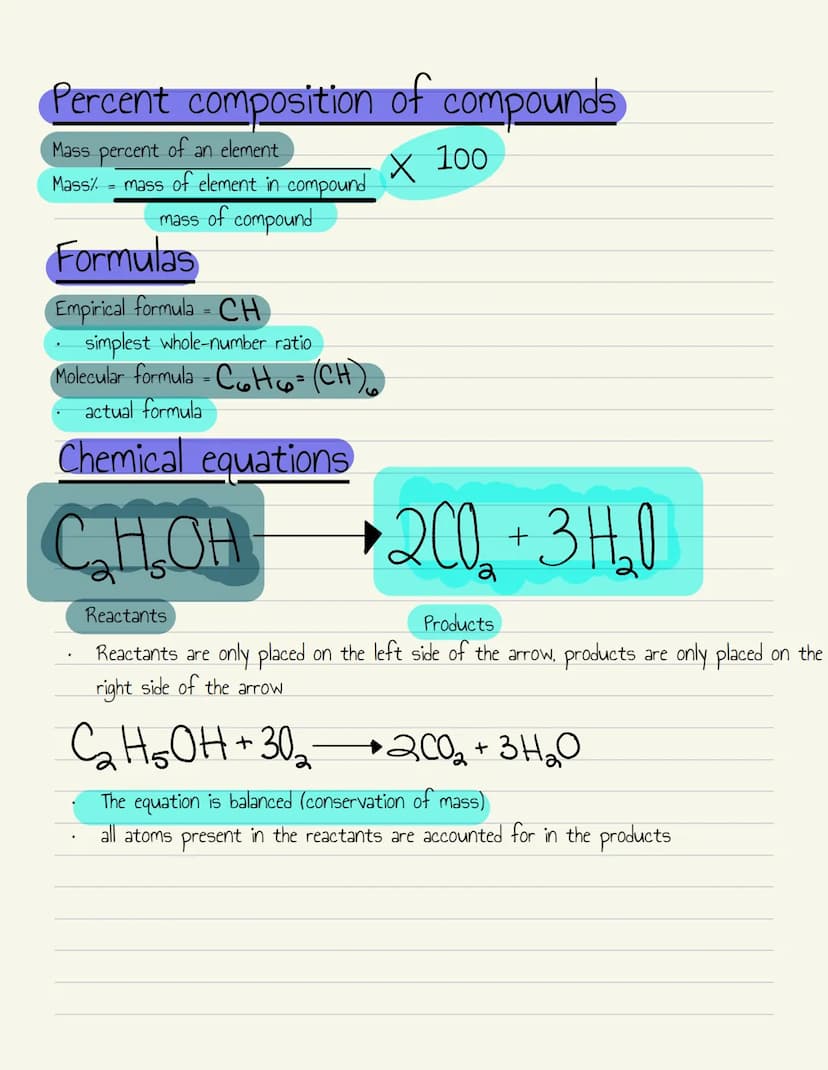 Percent composition of compounds
Mass percent of an element
Mass% = mass of element in compound X 100
mass of compound
Formulas
Empirical formula = CH
· simplest whole-number ratio
Molecular formula = C₆H₆ = (CH)₆
· actual formula
Chemical equations
C₂H₅OH → 2CO₂ + 3H₂O
Reactants Products
· Reactants are only placed on the left side of the arrow, products are only placed on the
right side of the arrow
C₂H₅OH + 3O₂ → 2CO₂ + 3H₂O
· The equation is balanced (conservation of mass)
· all atoms present in the reactants are accounted for in the products